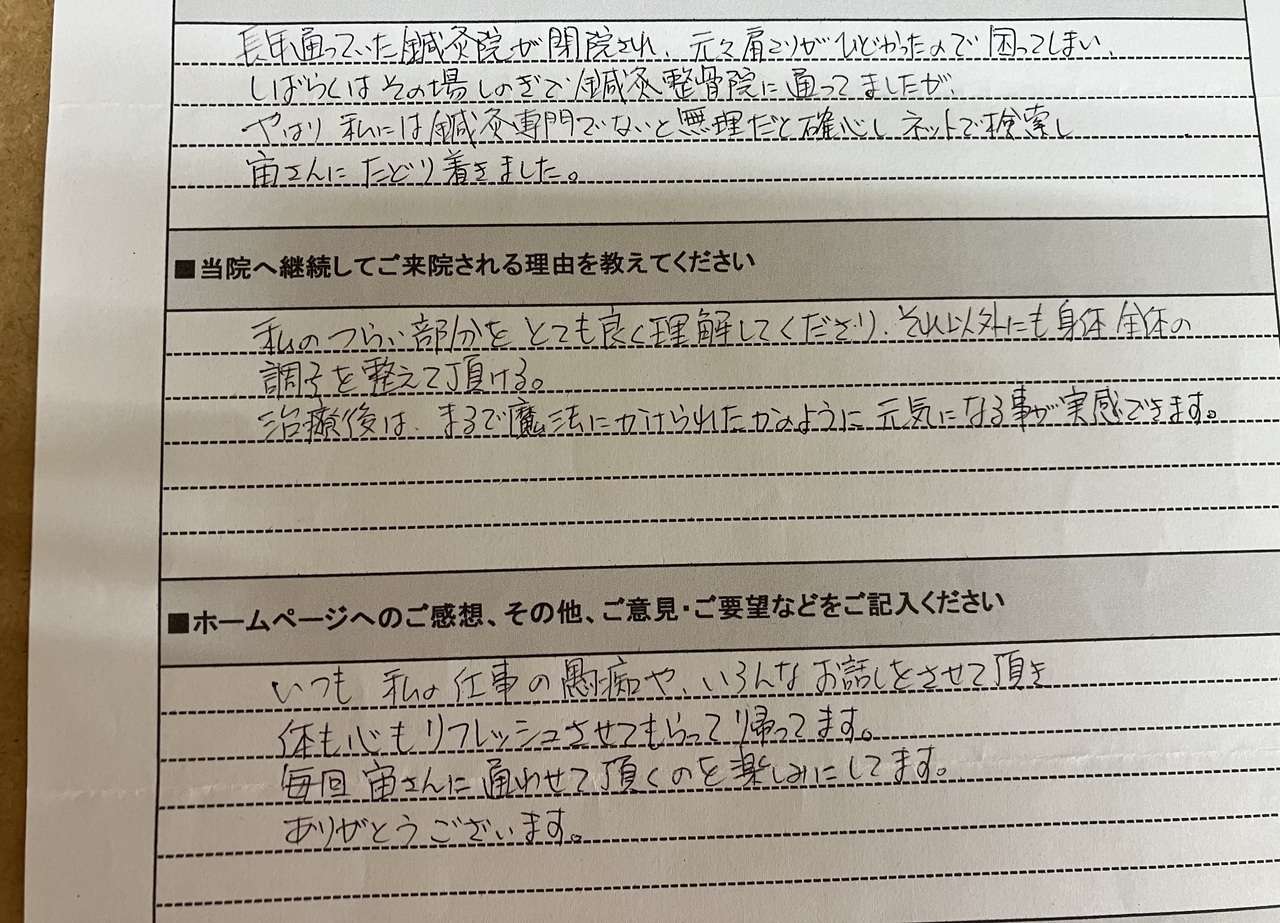 長年通っていた鍼灸院が閉院され、元々肩こりがひどかったので困ってしまい、
しばらくはその場しのぎで鍼灸整骨院に通ってましたが、
やはり私には鍼灸専門でないと無理だと確心し ネットで検索し
宙さんにたどり着きました。
■当院へ継続してご来院される理由を教えてください
私のつらい部分をとても良く理解してくださり、それ以外にも身体全体の
調子を整えて頂ける。
治療後は、まるで魔法にかけられたかのように元気になる事が実感できます。
■ホームページへのご感想、その他、ご意見・ご要望などをご記入ください
いつも私の仕事の愚痴や、いろんなお話しをさせて頂き
体も心もリフレッシュさせてもらって帰ってます。
毎回宙さんに通わせて頂くのを楽しみにしてます。
ありがとうございます。